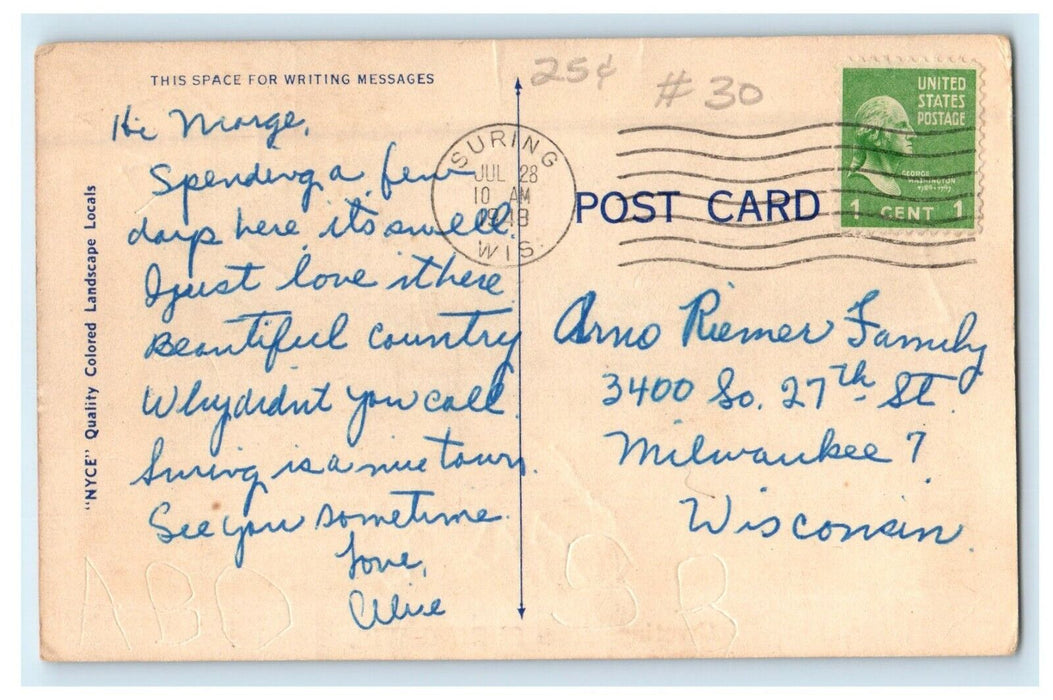 THIS SPACE FOR WRITING MESSAGES
Hi Marge,
Spending a few
days here its swell.
I just love it here
Beautiful country
Why didnt you call.
Suring is a nice town.
See you sometime.
Love,
Alice
"NYCE" Quality Colored Landscape Locals
25¢
#30
SURING
JUL 28
10 AM
1948
WIS.
UNITED
STATES
POSTAGE
GEORGE
WASHINGTON
1789-1797
1 CENT 1
POST CARD
Arno Riemer Family
3400 So. 27th St.
Milwaukee 7
Wisconsin.
ABO
8 B